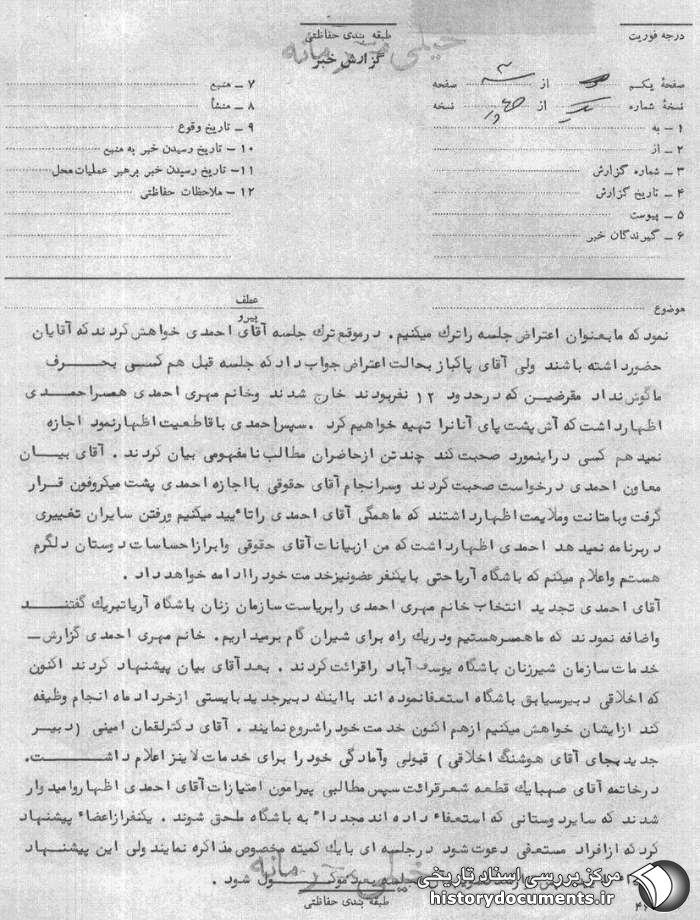 درجه فوریت
طبقه بندی حفاظتی
خیلی محرمانه
گزارش خبر
صفحهٔ یکم از سه صفحه
نسخهٔ شماره یک از چهار نسخه
۱ – به
۲ – از
۳ – شماره گزارش
۴ – تاریخ گزارش
۵ – پیوست
۶ – گیرندگان خبر
۷ – منبع
۸ – منشأ
۹ – تاریخ وقوع
۱۰ – تاریخ رسیدن خبر به منبع
۱۱– تاریخ رسیدن خبر برهبر عملیات محل
۱۲ – ملاحظات حفاظتی
موضوع
عطف
پیرو
نمود که ما بعنوان اعتراض جلسه را ترك میكنیم . در موقع ترك جلسه آقای احمدی خواهش كردند كه آقایان
حضور داشته باشند ولی آقای پاكباز بحالت اعتراض جواب داد كه جلسه قبل هم كسی بحرف
ما گوش نداد مقرضین كه در حدود ۱۲ نفر بودند خارج شدند و خانم مهری احمدی همسر احمدی
اظهار داشت كه آش پشت پای آنانرا تهیه خواهیم كرد . سپس احمدی با قاطعیت اظهار نمود اجازه
نمیدهم كسی در اینمورد صحبت كند چند تن از حاضران مطالب نامفهومی بیان كردند . آقای بیان
معاون احمدی درخواست صحبت كردند و سرانجام آقای حقوقی با اجازه احمدی پشت میكروفون قرار
گرفت و با متانت و ملایمت اظهار داشتند كه ما همگی آقای احمدی را تأیید میكنیم و رفتن سایران تغییری
در برنامه نمیدهد احمدی اظهار داشت كه من از بیانات آقای حقوقی و ابراز احساسات دوستان دلگرم
هستم و اعلام میكنم كه باشگاه آریا حتی با یكنفر عضو نیز خدمت خود را ادامه خواهد داد .
آقای احمدی تجدید انتخاب خانم مهری احمدی را بریاست سازمان زنان باشگاه آریا تبریك گفتند
و اضافه نمودند كه ما همسر هستیم و در یك راه برای شیران گام برمیداریم . خانم مهری احمدی گزارش –
خدمات سازمان شیر زنان باشگاه یوسف آباد را قرائت كردند . بعد آقای بیان پیشنهاد كردند اكنون
كه اخلاقی دبیر سابق باشگاه استعفا نموده اند با اینكه دبیر جدید بایستی از خرداد ماه انجام وظیفه
كند از ایشان خواهش میكنیم از هم اكنون خدمت خود را شروع نمایند . آقای دكتر لقمان امینی ( دبیر
جدید بجای آقای هوشنگ اخلاقی ) قبولی و آمادگی خود را برای خدمات لاینز اعلام داشت.
در خاتمه آقای صهبا یك قطعه شعر قرائت سپس مطالبی پیرامون امتیازات آقای احمدی اظهار و امیدوار
شدند كه سایر دوستانی كه استعفا داده اند مجدداً به باشگاه ملحق شوند . یكنفر از اعضاء پیشنهاد
كرد كه از افراد مستعفی دعوت شود در جلسه ای با یك كمیته مخصوص مذاكره نمایند ولی این پیشنهاد
جلسه بعد موكول شود .
خیلی محرمانه
طبقه بندی حفاظتی
مركز بررسی اسناد تاریخی
historydocuments.ir